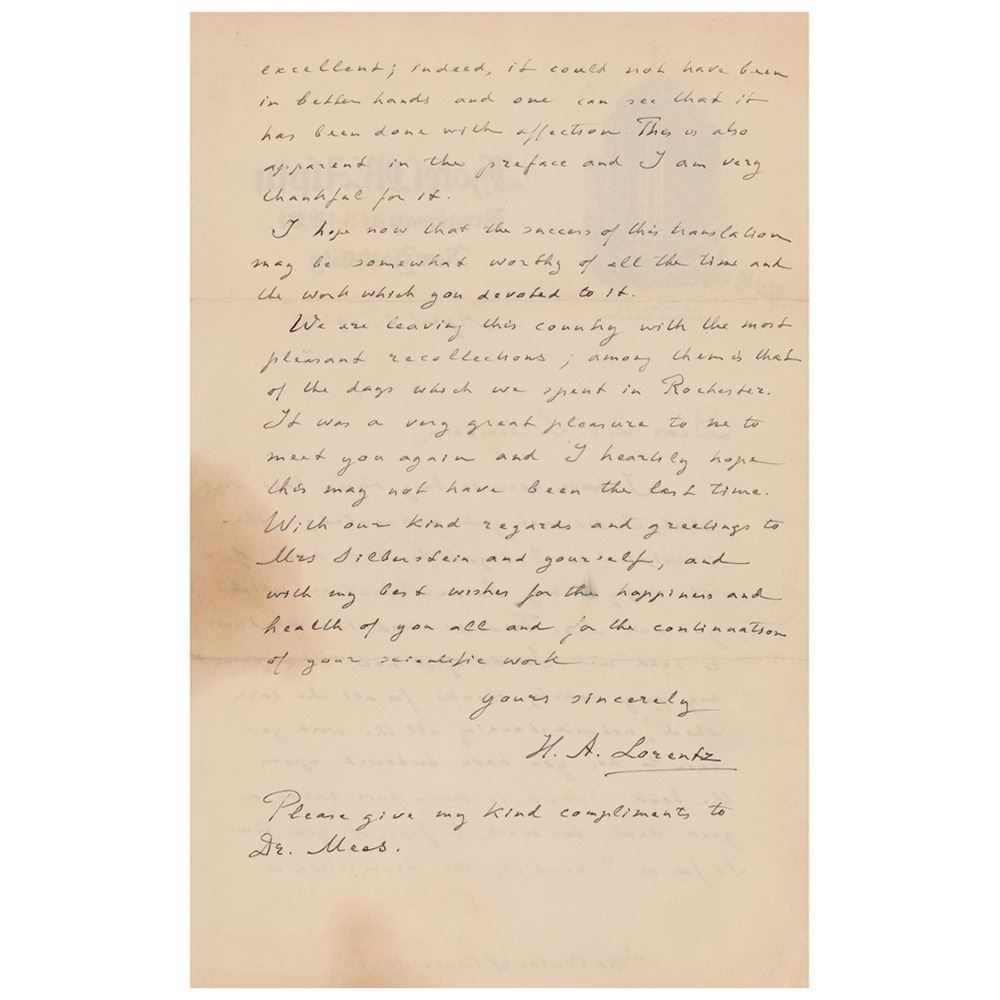 excellent; indeed, it could not have been
in better hands and one can see that it
has been done with affection. This is also
apparent in the preface and I am very
thankful for it.
I hope now that the success of this translation
may be somewhat worthy of all the time and
the work which you devoted to it.
We are leaving this country with the most
pleasant recollections; among them is that
of the days which we spent in Rochester.
It was a very great pleasure to me to
meet you again and I heartily hope
this may not have been the last time.
With our kind regards and greetings to
Mrs Silberstein and yourself, and
with my best wishes for the happiness and
health of you all and for the continuation
of your scientific work
yours sincerely
H. A. Lorentz
Please give my kind compliments to
Dr. Mees.